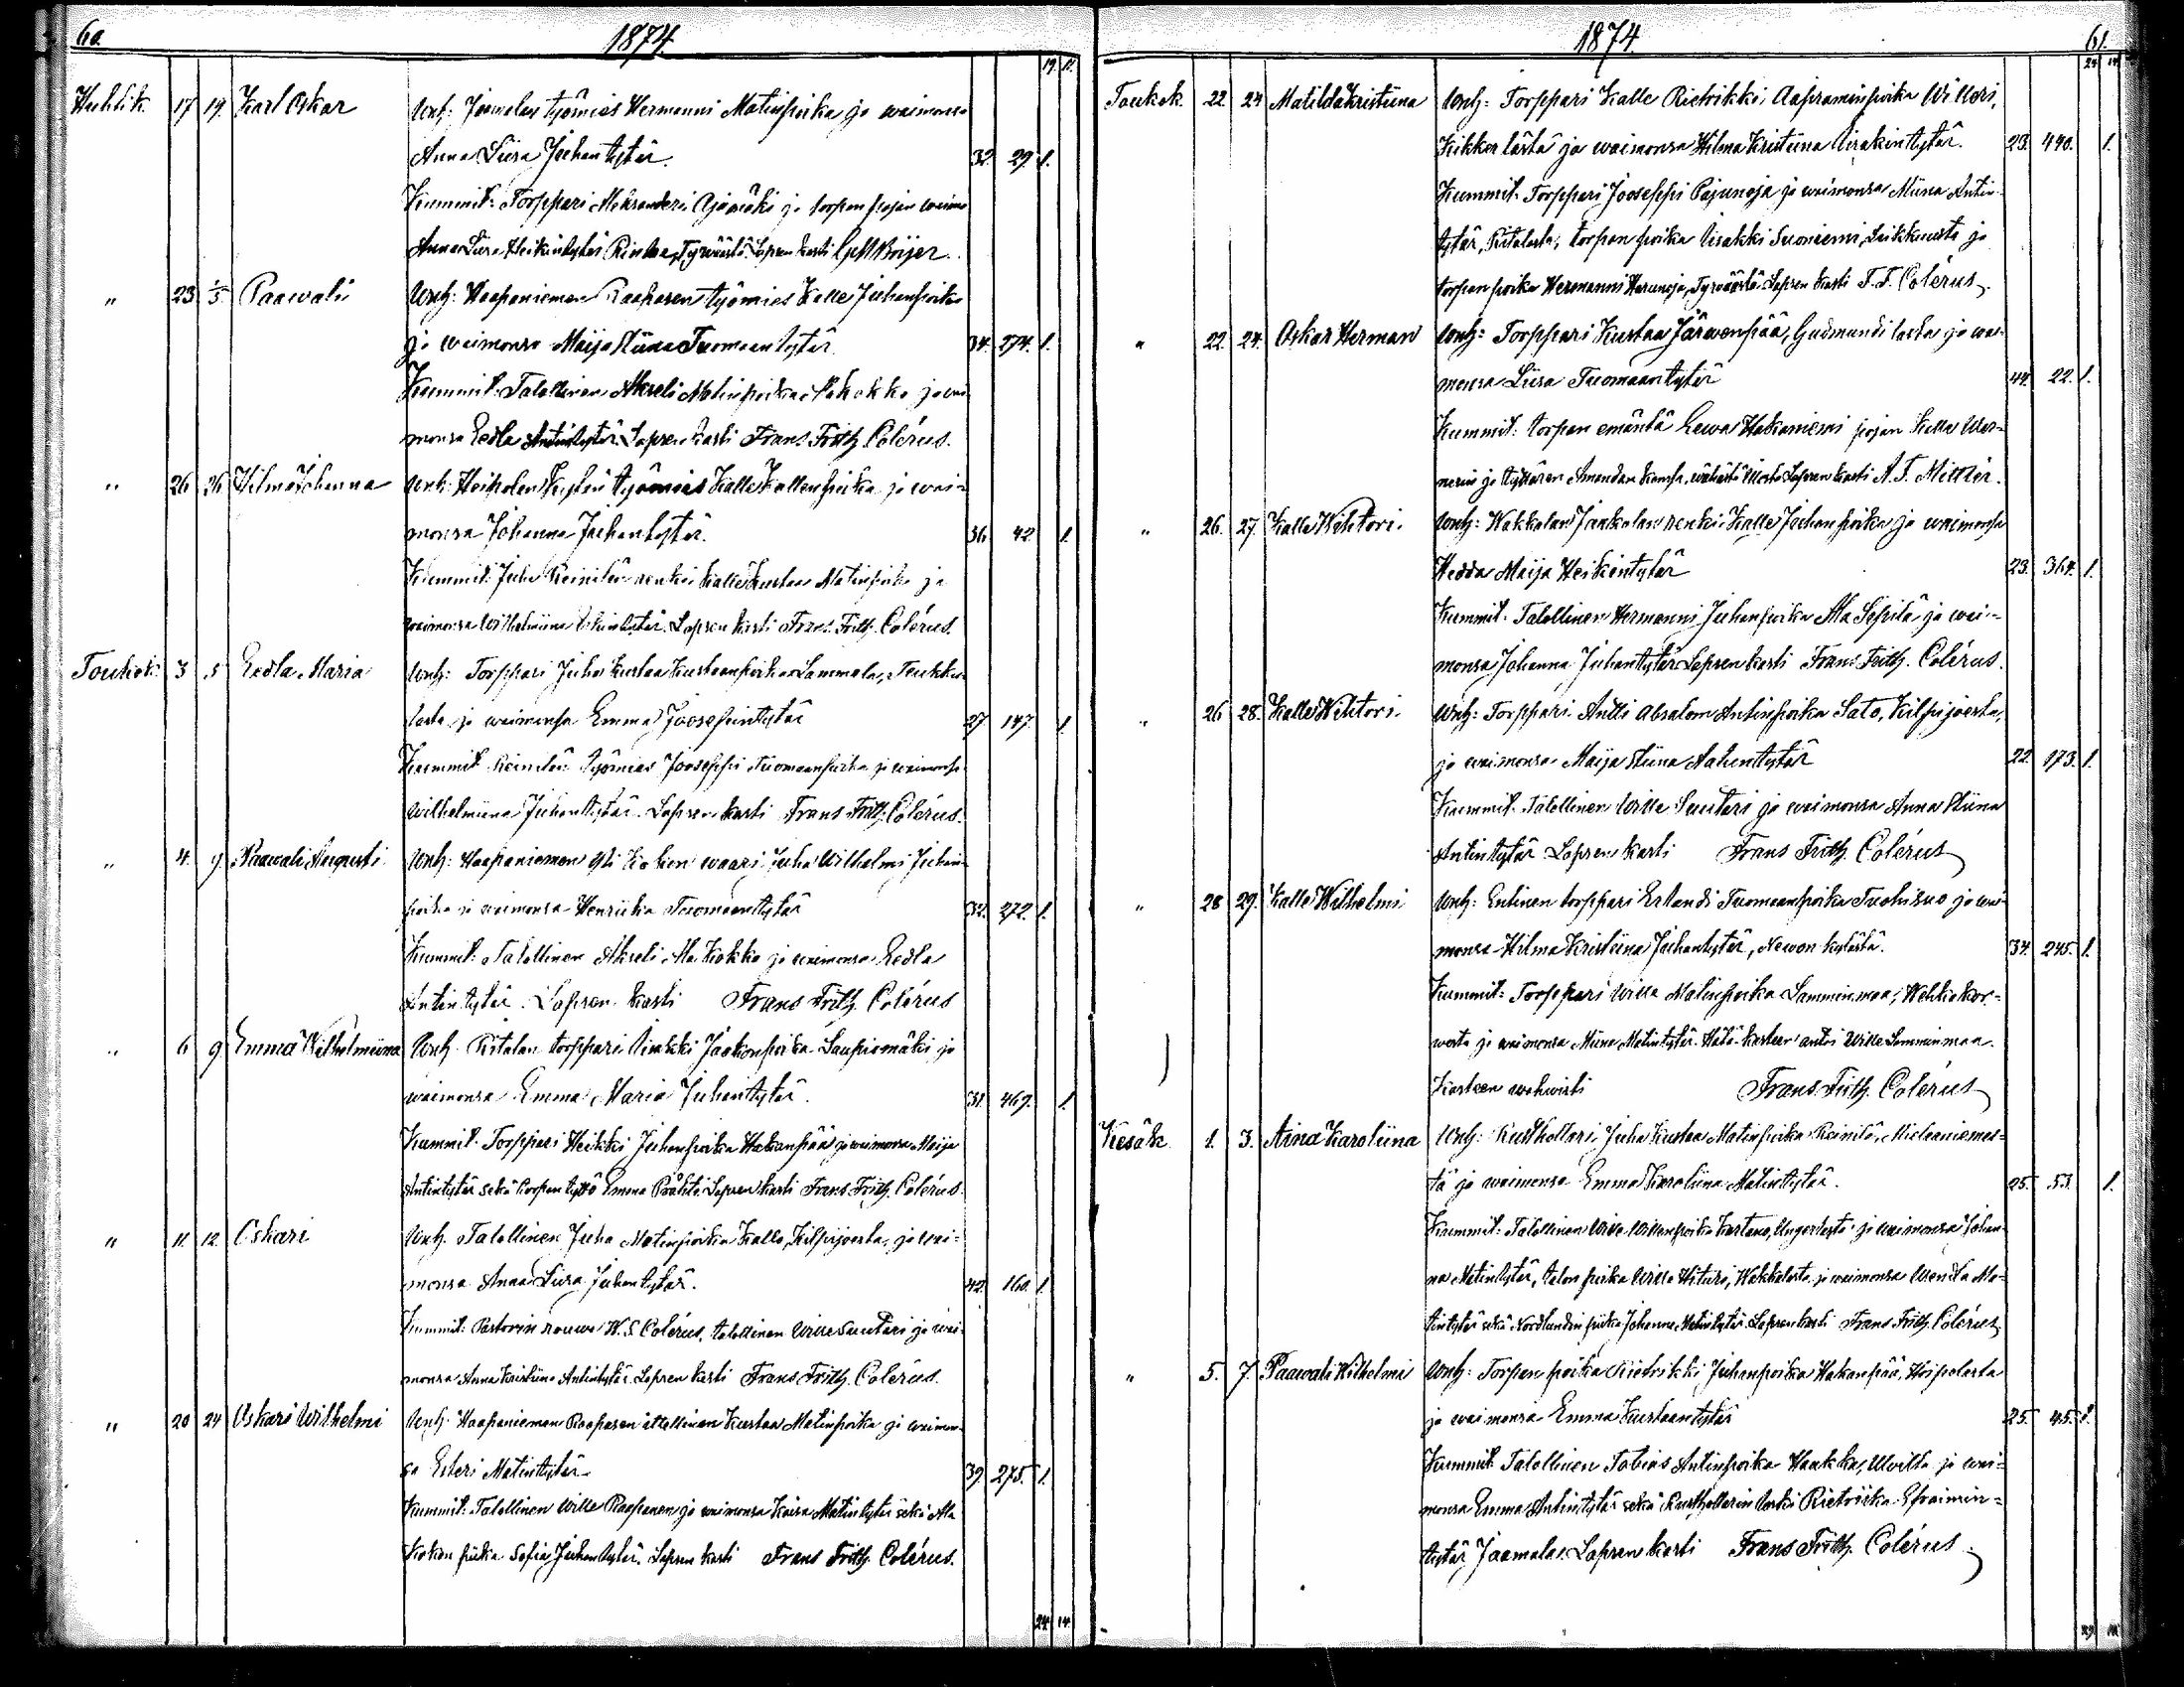 60. 1874.
19. 11.
Huhtik. 17 19. Karl Oskar Wnh: Jaamalan työmies Hermanni Matinpoika ja waimonsa
Anna Liisa Juhantytär. 32. 29. 1.
Kummit: Torppari Aleksanderi Ajomäki ja torpan pojan waimo
Anna Liisa Heikintytär Rientoo, Tyrwäästä. Lapsen kasti
" 23 1/5 Paawali Wnh: Haapaniemen Raaposen työmies Kalle Juhanpoika
ja waimonsa Maija Stiina Tuomaantytär 34. 274. 1.
Kummit: Talollinen Akseli Matinpoika Ala Kokko ja wai-
monsa Eedla Antintytär. Lapsen kasti Frans Frith. Colérus.
" 26 26 Hilma Johanna Wnh: Hoipolan Kylän työmies Kalle Kallenpoika ja wai-
monsa Johanna Juhantytär. 36 42. 1.
Kummit: Juho Reinilän renki Kalle Kustaa Matinpoika ja
waimonsa Wilhelmiina Lapsen kasti Frans Frith. Colérus.
Toukok. 3 5 Eedla Maria Wnh: Torppari Juha Kustaa Kustaanpoika Sammala,
ja waimonsa Emma Joosepintytär 27 147. 1.
Kummit: Reinilän työmies Jooseppi Tuomaanpoika ja waimonsa
Wilhelmiina Juhantytär. Lapsen kasti Frans Frith. Colérus.
" 4. 9. Paawali Augusti Wnh: Haapaniemen Yli Kokon waari Juha Wilhelmi Juhan-
poika ja waimonsa Henriika Tuomaantytär 32. 272. 1.
Kummit: Talollinen Akseli Ala Kokko ja waimonsa Eedla
Antintytär. Lapsen kasti Frans Frith. Colérus
" 6 9. Emma Wilhelmiina Wnh: Ritalan torppari Iisakki Jaakonpoika Saupiomäki ja
waimonsa Emma Maria Juhantytär. 31. 469. 1.
Kummit: Torppari Heikki Juhanpoika Hakanpää ja waimonsa Maija
Antintytär sekä torpan tyttö Emma Lapsen kasti Frans Frith. Colérus.
" 11. 12. Oskari Wnh: Talollinen Juha Matinpoika Kallo, Kilpijoesta, ja wai-
monsa Anna Liisa Juhantytär. 42. 160. 1.
Kummit: Pastorin rouwa W.S. Colérus, talollinen Wille Suutari ja wai-
monsa Anna Kristiina Antintytär. Lapsen kasti Frans Frith. Colérus.
" 20 24 Oskari Wilhelmi Wnh: Haapaniemen Raaposen itsellinen Kustaa Matinpoika ja waimon-
sa Esteri Matintytär 39. 275. 1.
Kummit: Talollinen Wille Raaponen ja waimonsa Kaisa Matintytär sekä Ala
Kokon piika Sofia Juhantytär. Lapsen kasti Frans Frith. Colérus.
24. 14.
1874. 61.
24. 14.
Toukok. 22. 24 Matilda Kristiina Wnh: Torppari Kalle Rietrikki Aapraminpoika Wi
ja waimonsa Hilma Kristiina Iisakintytär. 23. 440. 1.
Kummit: Torppari Jooseppi Pajunoja ja waimonsa Miina Antin-
tytär, Ritalasta, torpan poika Iisakki Suoniemi, Liikkuusta ja
torpan poika Hermanni Harunoja, Tyrwäästä. Lapsen kasti F. F. Colérus.
" 22. 24. Oskar Herman Wnh: Torppari Kustaa Järwenpää, Gudmundilasta ja wai-
monsa Liisa Tuomaantytär 44. 22. 1.
Kummit: torpan emäntä Eewa Hakaniemi pojan Kalle Wer-
nerin ja tyttären Amandan kanssa Lapsen kasti
" 26. 27. Kalle Wihtori. Wnh: Wakkalan Jaakolan renki Kalle Juhanpoika ja waimonsa
Hedda Maija Heikintytär 23. 364. 1.
Kummit: Talollinen Hermanni Juhanpoika Ala Sepilä ja wai-
monsa Johanna Juhantytär. Lapsen kasti Frans Frith. Colérus.
" 26 28. Kalle Wihtori. Wnh: Torppari Antti Absalom Antinpoika Sato, Kilpijoesta,
ja waimonsa Maija Stiina 22. 173. 1.
Kummit: Talollinen Wille Suutari ja waimonsa Anna Stiina
Antintytär. Lapsen kasti Frans Frith. Colérus
" 28 29. Kalle Wilhelmi Wnh: Entinen torppari Erlandi Tuomaanpoika Tuohisuo ja wai-
monsa Hilma Kristiina Juhantytär, Newon kylästä. 34. 245. 1.
Kummit: Torppari Wille Matinpoika Samminmaa, Wehkakor-
westa ja waimonsa Miina Matintytär. Hätä-kasteen antoi Wille Samminmaa.
Kasteen wahwisti Frans Frith. Colérus
Kesäk. 1. 3. Aina Karoliina Wnh: Rusthollari Juha Kustaa Matinpoika Reinilä, Mieloaniemes-
tä ja waimonsa Emma Karoliina Matintytär. 25. 53. 1.
Kummit: Talollinen Wille Willenpoika Kartano, ja waimonsa Johan-
na Matintytär, talon poika Wille Hituri, Wakkalasta ja waimonsa Wendla Ma-
tintytär sekä Nordlundin piika Johanna Matintytär. Lapsen kasti Frans Frith. Colérus
" 5. 7. Paawali Wilhelmi Wnh: Torpan poika Rietrikki Juhanpoika Hakanpää, Hoipolasta
ja waimonsa Emma Kustaantytär 25. 45. 1.
Kummit: Talollinen Tobias Antinpoika Haakka, Ulwilta ja wai-
monsa Emma Antintytär sekä Rusthollarin leski Rietriika Efraimin-
tytär Jaamala. Lapsen kasti Frans Frith. Colérus.